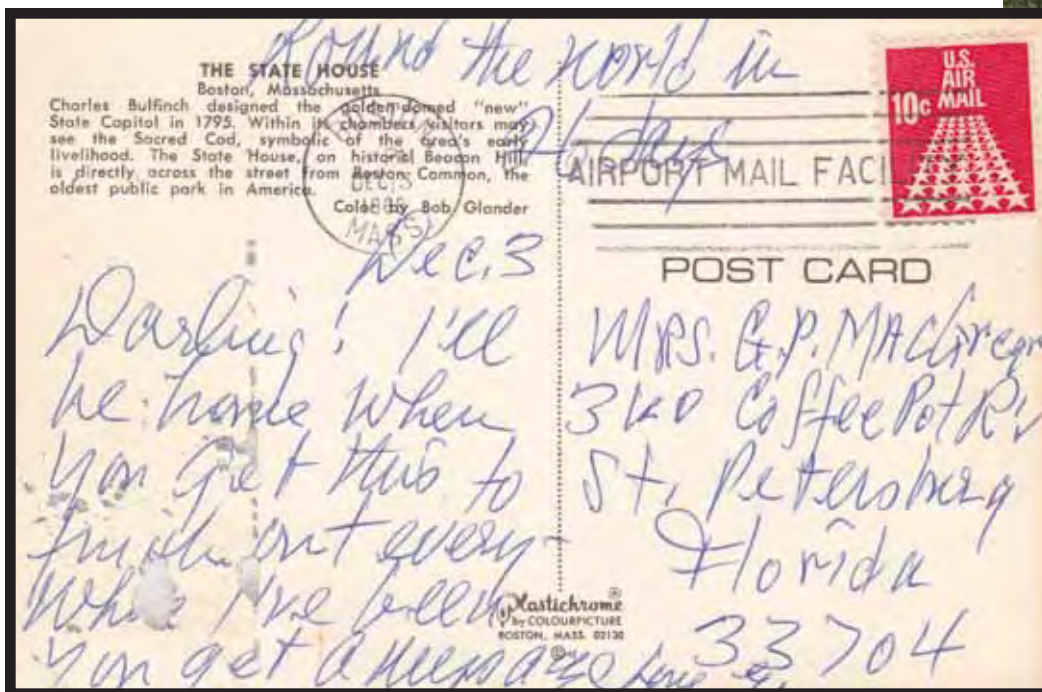 Round the world in
26 days
THE STATE HOUSE
Boston, Massachusetts
Charles Bulfinch designed the golden-domed "new"
State Capitol in 1795. Within its chambers visitors may
see the Sacred Cod, symbolic of the area's early
livelihood. The State House, on historical Beacon Hill,
is directly across the street from Boston Common, the
oldest public park in America.
Color by Bob Glander
DEC 3
MASS
AIRPORT MAIL FACI
U.S.
AIR
MAIL
10c
Dec. 3
Darling! I'll
be home when
you get this to
out every-
where I've been
you get a message Love
POST CARD
MRS. G.P. MacGregor
Coffee Pot
St. Petersburg
Florida
33704
Plastichrome®
by COLOURPICTURE
BOSTON, MASS. 02130
©